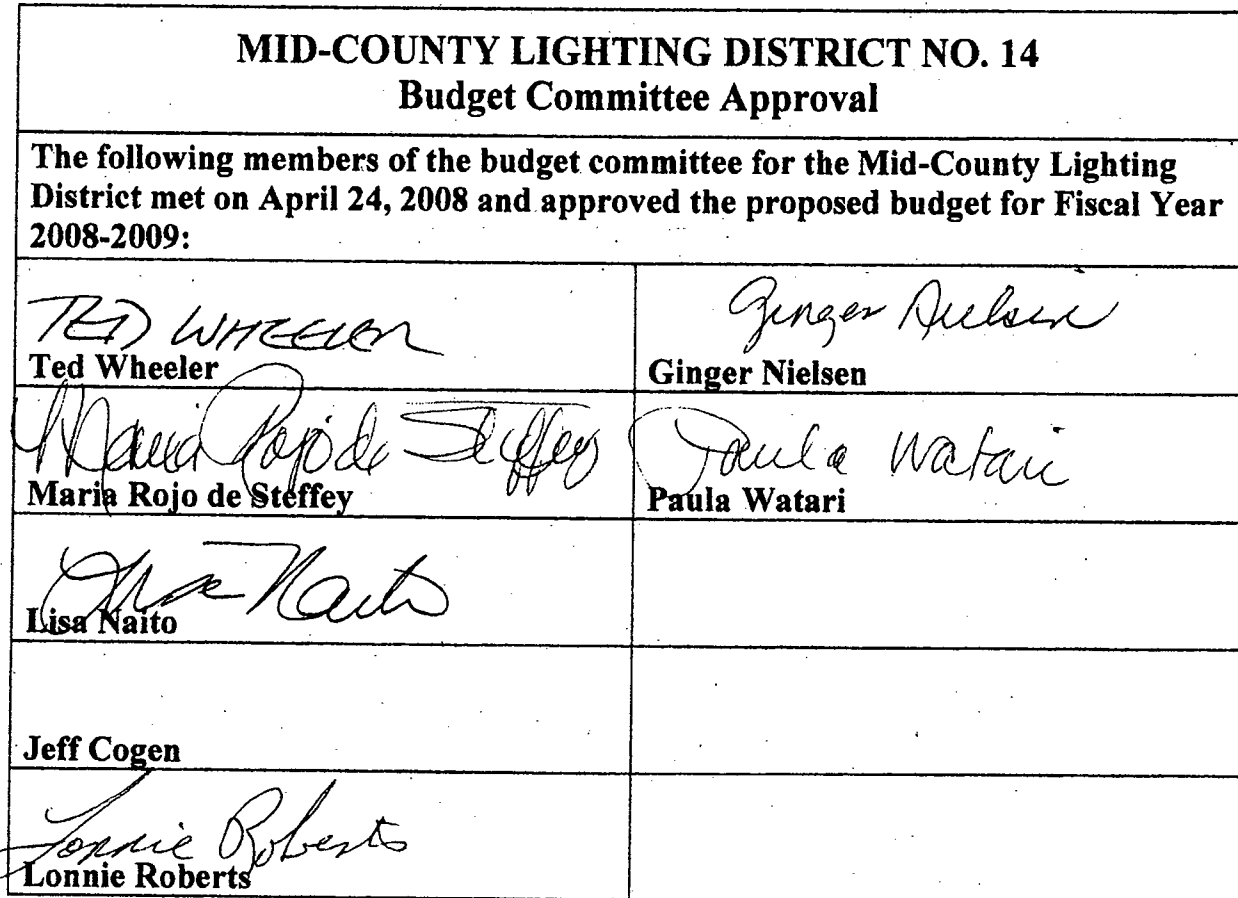 MID-COUNTY LIGHTING DISTRICT NO. 14
Budget Committee Approval
The following members of the budget committee for the Mid-County Lighting
District met on April 24, 2008 and approved the proposed budget for Fiscal Year
2008-2009:
TED WHEELER
Ted Wheeler
Ginger Nielsen
Ginger Nielsen
Maria Rojo de Steffey
Maria Rojo de Steffey
Paula Watari
Paula Watari
Lisa Naito
Lisa Naito
Jeff Cogen
Lonnie Roberts
Lonnie Roberts